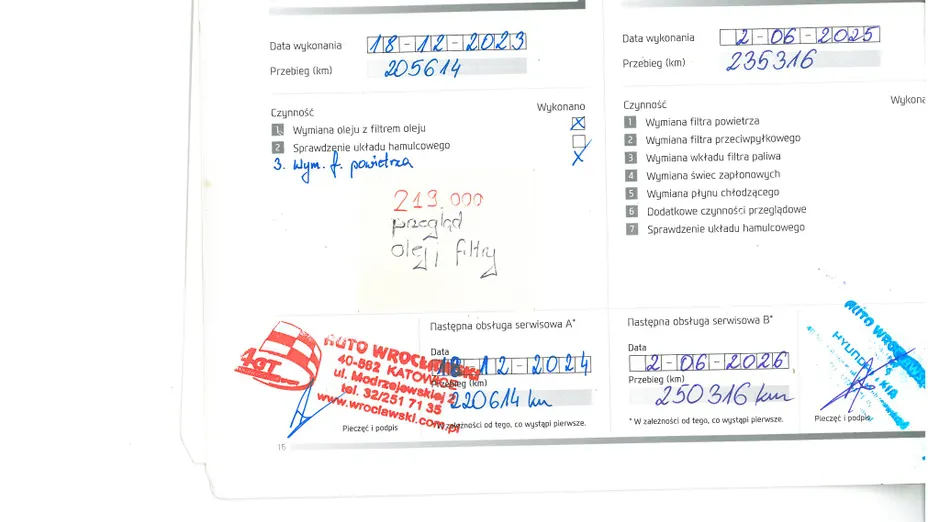 Data wykonania 18-12-2023
Przebieg (km) 205614
Czynność Wykonano
1 Wymiana oleju z filtrem oleju X
2 Sprawdzenie układu hamulcowego
3. Wym. f. powietrza X
219.000
przegląd
olej i filtry
AUTO WROCŁAWSKI
40-862 KATOWICE
ul. Modrzejewskiej 2
tel. 32/251 71 35
www.wroclawski.com.pl
Pieczęć i podpis
Następna obsługa serwisowa A*
Data
18-12-2024
Przebieg (km)
220614 km
*W zależności od tego, co wystąpi pierwsze.
16
Data wykonania 2-06-2025
Przebieg (km) 235316
Czynność
1 Wymiana filtra powietrza
2 Wymiana filtra przeciwpyłkowego
3 Wymiana wkładu filtra paliwa
4 Wymiana świec zapłonowych
5 Wymiana płynu chłodzącego
6 Dodatkowe czynności przeglądowe
7 Sprawdzenie układu hamulcowego
Następna obsługa serwisowa B*
Data
2-06-2026
Przebieg (km)
250316 km
* W zależności od tego, co wystąpi pierwsze.
AUTO
HYUNDAI
KIA
Pieczęć i podpis